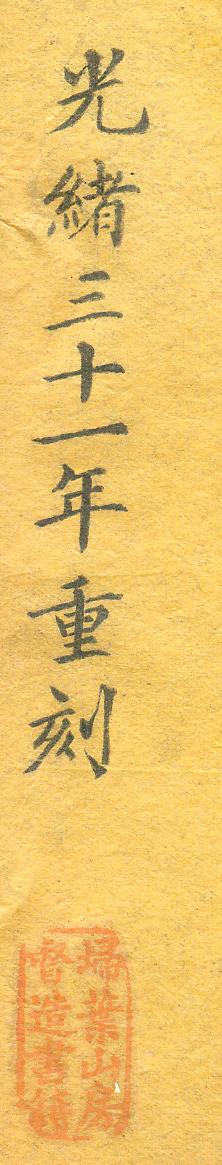 光緒三十一年重刻
埽葉山房
督造書籍